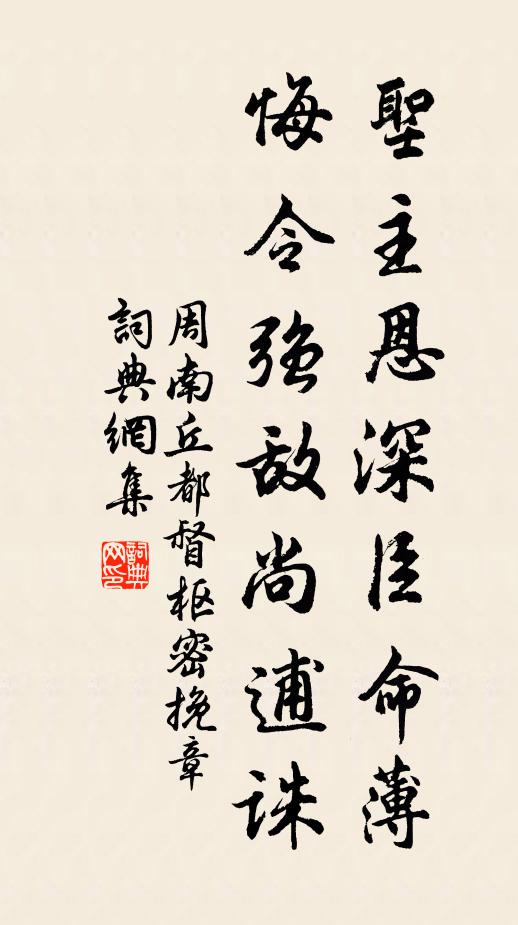 聖主恩深臣命薄
悔令强敌尚逋誅
周南丘都督枢密挽章
詞典網集
詞典
网印